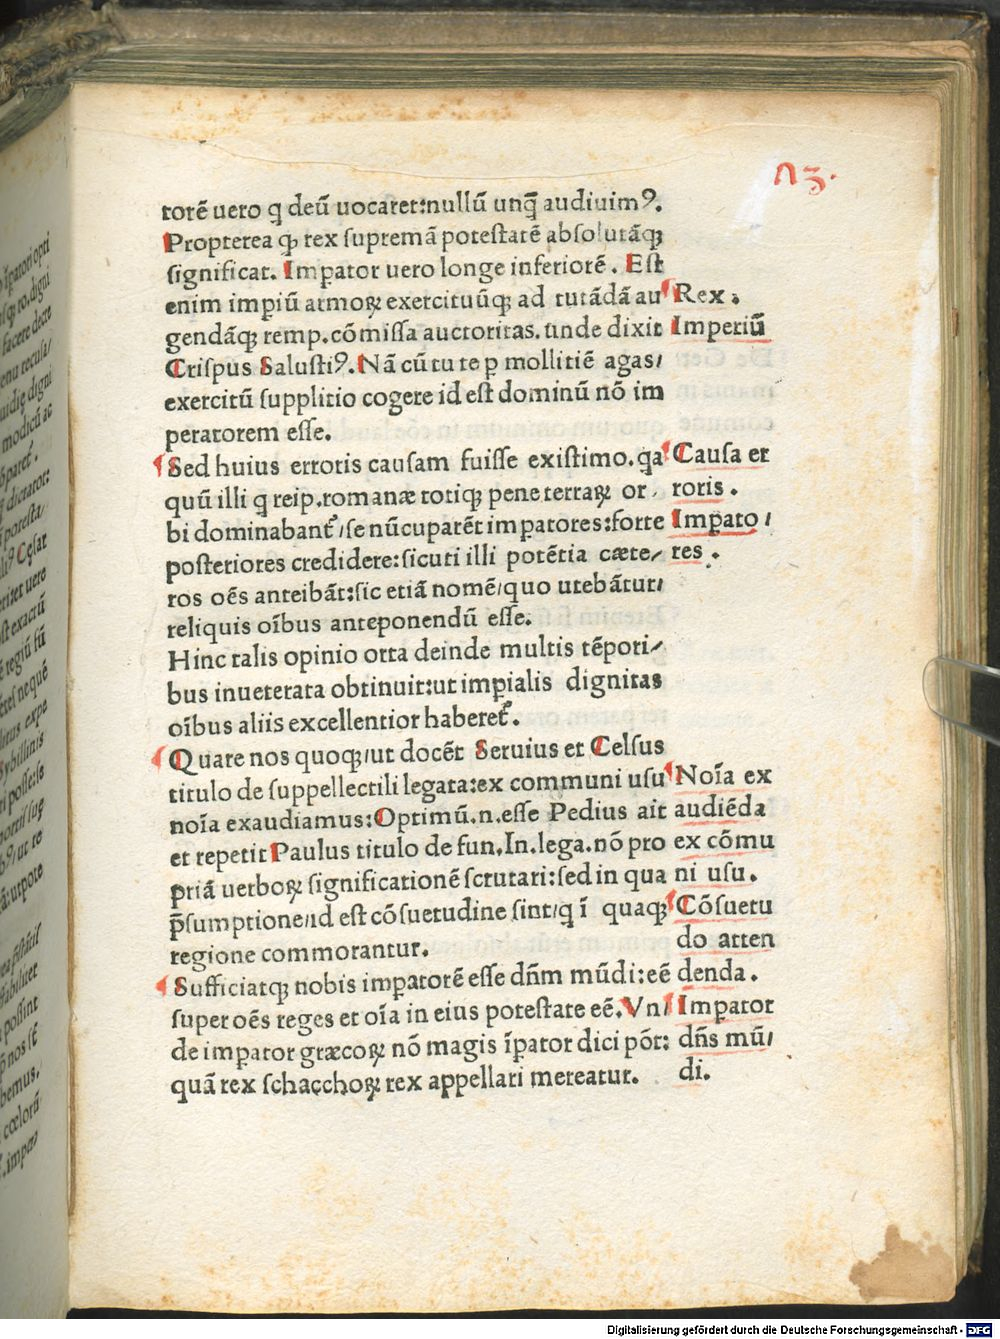 torē uero q̄ deū uocaret:nullū unq̄ audiuimꝰ.
Propterea qꝫ rex supremā potestatē absolutāqꝫ
significat. Impator uero longe inferiorē. Est
enim impiū armoꝝ exercituūqꝫ ad tutādā au
gendāqꝫ remp.cōmissa auctoritas.unde dixit
Crispus Salustiꝰ.Nā cū tu te p mollitiē agas/
exercitū supplitio cogere id est dominū nō im
peratorem esse.
Sed huius erroris causam fuisse existimo.qa
quū illi q reip.romanæ totiqꝫ pene terraꝝ or/
bi dominabant᷑/se nūcuparēt impatores:forte
posteriores credidere:sicuti illi potētia cæte/
ros oēs anteibāt:sic etiā nomē/quo utebātur/
reliquis oībus anteponendū esse.
Hinc talis opinio orta deinde multis tēpori/
bus inueterata obtinuit:ut impialis dignitas
oībus aliis excellentior haberet᷑.
Quare nos quoqꝫ/ut docēt Seruius et Celsus
titulo de suppellectili legata:ex communi usu
noīa exaudiamus:Optimū.n.esse Pedius ait
et repetit Paulus titulo de fun.In.lega.nō pro
priā uerboꝝ significationē scrutari:sed in qua
p̄sumptione/id est cōsuetudine sint/q ī quaqꝫ
regione commorantur.
Sufficiatqꝫ nobis impatorē esse dn̄m mūdi:eē
super oēs reges et oīa in eius potestate eē.Vn/
de impator græcoꝝ nō magis īpator dici pōt:
quā rex schacchoꝝ rex appellari mereatur.
Rex.
Imperiū
Causa er
roris.
Impato/
res.
Noīa ex
audiēda
ex cōmu
ni usu.
Cōsuetu
do atten
denda.
Impator
dn̄s mū/
di.
Digitalisierung gefördert durch die Deutsche Forschungsgemeinschaft - DFG